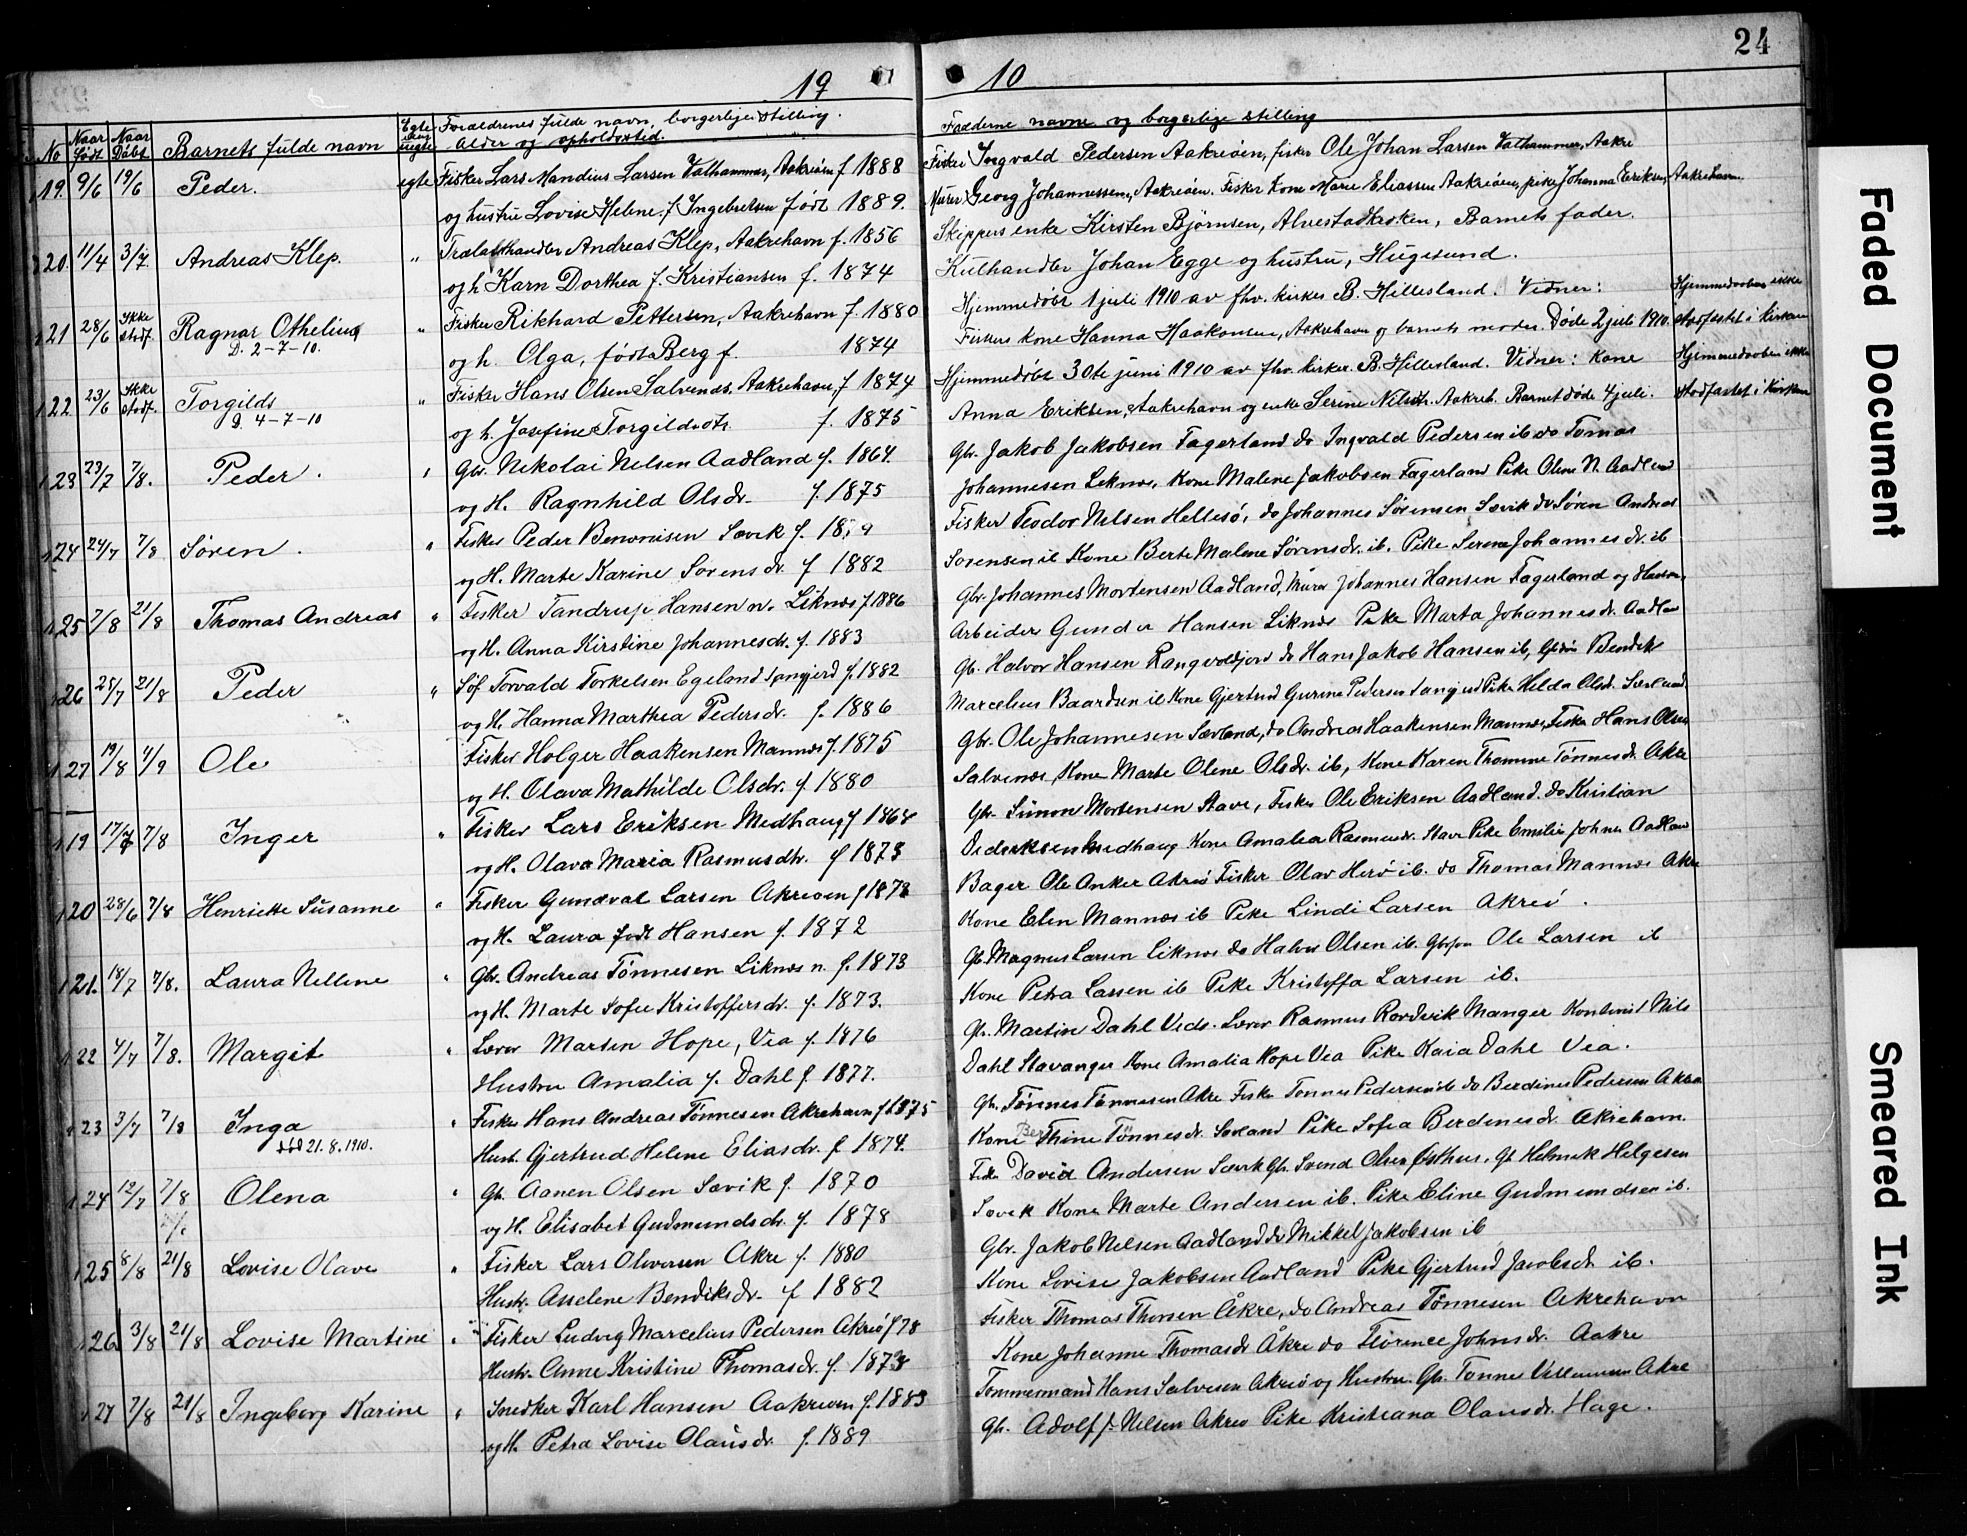 24
19 10
No Naar født Naar Døbt Barnets fulde navn Egte uegte Foraldrenes fulde navn, borgerlige stilling. Fadderne navne og borgerlige stilling
Alder og opholdssted.
19. 9/6 19/6 Peder. egte Fisker Lars Mandius Larsen Valhammer, Aakreøen f 1888 Fisker Ingvald Pedersen Aakreøen, fisker Ole Johan Larsen Valhammer, Aakre
og hustru Lovise Helene f. Ingebretsen født 1889. Murer Georg Johannessen, Aakreøen. Fisker Kone Marie Eliassen Aakreøen, pike Johanna Eriksen, Aakrehavn.
20 11/4 3/7 Andreas Klep. " Trælasthandler Andreas Klep, Aakrehavn f. 1856 Skippers enke Kirsten Bjørnsen, Alvestadkroken, Barnets fader.
og h Karn Dorthea f. Kristiansen f. 1874 Kulhandler Johan Egge og hustru, Hugesund.
21 28/6 Ikke stadf. Ragnar Othelius " Fisker Rikhard Pettersen, Aakrehavn f. 1880 Hjemmedøbt 1 juli 1910 av fhv. kirkes B. Hillesland. Vidner: Hjemmedaaben ikke
D. 2-7-10. og h. Olga, født Berg f. 1874 Fiskers kone Hanna Haakonsen, Aakrehavn og barnets moder. Døde 2 juli 1910. stadfæstet i kirken
22 23/6 Ikke stadf. Torgilds " Fisker Hans Olsen Salvesnes. Aakrehavn, f 1874 Hjemmedøbt 30te juni 1910 av fhv. kirker. B. Hillesland. Vidner: Kone Hjemmedaaben ikke
D. 4-7-10 og h. Josefine Torgildsdtr. f. 1875 Anna Eriksen, Aakrehavn og enke Serine Nilsdt. Aakreh. Barnet døde 4 juli. stadfæstet i Kirken
23 23/7 7/8. Peder. " Gbr. Nikolai Nelsen Aadland f. 1864. Gbr. Jakob Jakobsen Fagerland do Ingvald Pedersen ib do Tomas
og H. Ragnhild Olsdr. f. 1875 Johannesen Leknes, Kone Malene Jakobsen Fagerland Pike Olene N. Aadland
24 24/7 7/8 Søren. " Fisker Peder Sævik f. 18 9 Fisker Teodor Nilsen Hellesø, do Johannes Sørensen Sævik do Søren Andreas
og H. Marte Karine Sørensdr. f 1882 Sørensen ib Kone Berte Malene Sørensdr. ib. Pike Serene Johannesdr. ib
25 7/8 21/8 Thomas Andreas " Fisker Tandrup Hansen n. Liknes f 1886 Gbr. Johannes Mortensen Aadland, Murer Johannes Hansen Fagerland og Hustru,
og H. Anna Kirstine Johannesdr. f. 1883 Arbeider Gunder Hansen Liknes Pike Marta Johannesdr. Aadland
26 28/7 21/8 Peder " Søf Torvald Torkelsen Egeland f. 1882 Gb. Halvor Hansen Rangvoldjord do Hans Jakob Hansen ib, Bendik
og H. Hanna Marthea Pedersdr. f. 1886 Marcelius Baardsen ib Kone Gjertrud Gurine Pedersen Pike Helda Olsdr. Sævland.
27 19/8 4/9 Ole Fisker Holger Haakensen Mannes f. 1875 Gbr. Ole Johannesen Sævland, do Andreas Haakensen Mannes, Fisker Hans Olsen
og H. Olava Mathilde Olsdr. f. 1880 Salvenes, Kone Marte Olene Olsdr. ib, Kone Karen Thomine Tønnesdr Akre
19 17/7 7/8 Inger " Fisker Lars Eriksen Medhaug f 1868 Gbr Simon Mortensen Stave, Fisker Ole Eriksen Aadland. do Kristian
og H. Olava Maria Rasmusdtr. f 1873 Dedereksen Medhaug Kone Amalia Rasmusdr. Stave Pike Emilie Johns Aadland
20 28/6 7/8 Henriette Susanne " Fisker Gundval Larsen Akreøen f 1873 Bager Ole Anker Akreø Fisker Olav Herø ib. do Thomas Mannes Akre
og H. Laura født Hansen f. 1872 Kone Elen Mannes ib Pike Lindi Larsen Akreø.
21. 18/7 7/8. Laura Nellene " Gbr. Andreas Tønnesen Liknes n. f. 1873 Gb. Magnus Larsen Liknes do Halvor Olsen ib. Ole Larsen ib
og H. Marte Sofie Kristoffersdr. f. 1873. Kone Petra Larsen ib Pike Kristoffa Larsen ib.
22 4/7 7/8. Margit " Lærer Marten Hope, Vea f. 1876 Gb. Martin Dahl Veds. Lærer Rasmus Rordvik Manger Kontorist Nils
Hustru Amalia f. Dahl f. 1877. Dahl Stavanger Kone Amalia Hope Vea Pike Kaia Dahl Vea.
23 3/7 7/8 Inga " Fisker Hans Andreas Tønnesen Akrehavn f 1875 Gb. Tønnes Tønnesen Akre Fisker Tønnes Pedersen ib do Berdines Pedersen Akreh
død 21.8.1910. Hust. Gjertrud Helene Eliasdr. f 1874. Kone Ber Thine Tønnesdr. Sævland Pike Sofia Berdenesdr. Akrehavn.
24 12/7 7/8 Olena " Gb. Aanen Olsen Sævik f. 1870 Fisker David Andersen Sævik Gb. Svend Olsen Østhus. Gb Helmik Helgesen
og H. Elisabet Gudmundsdr. f. 1878 Sævik Kone Marte Andersen ib. Pike Eline Gudmundsen ib.
25 8/8 21/8 Lovise Olave " Fisker Lars Oliversen Akre f. 1880 Gbr. Jakob Nelsen Aadland do Mikkel Jakobsen ib
Hustr. Aselene Bendiksdr. f 1882 Kone Lovise Jakobsen Aadland Pike Gjertrud Jacobsdr ib.
26 3/8 21/8 Lovise Martine " Fisker Ludvig Marcelius Pedersen Akreø f 78 Fisker Thomas Thorsen Åkre, do Andreas Tønnesen Akrehavn
Hustr. Anne Kristine Thomasdr. f. 1873 Kone Johanne Thomasdr Åkre do Florence Johnsdr. Aakre
27 7/8 21/8 Ingeborg Karine " Snedker Karl Hansen Aakreøen f. 1883 Tømmermand Hans Salvesen Akreø og Hustru. Gb. Tønnes Villumsen Akre
og H. Petra Lovise Olausdr. f. 1889 Gb. Adolf J. Nelsen Akreø Pike Kristiana Olausdr. Hage.
Faded Document
Smeared Ink